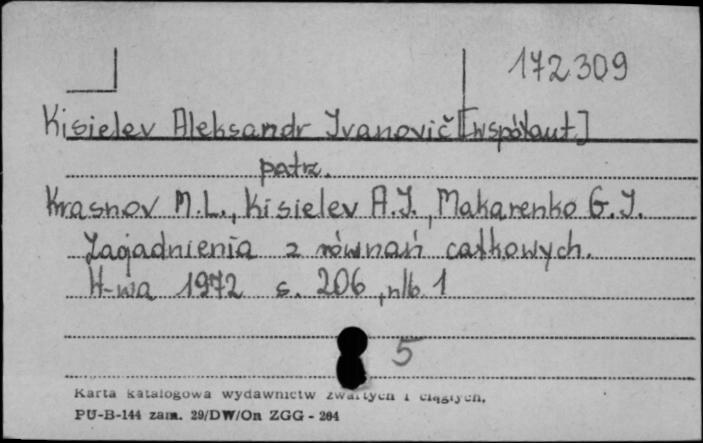 172309
Kisielev Aleksandr Ivanovič [współaut.]
patrz.
Krasnov M.L., Kisielev A.I., Makarenko G.I.
Zagadnienia z równań całkowych.
W-wa 1972 s. 206, nlb 1
5
Karta katalogowa wydawnictw zwartych i ciągłych,
PU-B-144 zam. 29/DW/On ZGG - 264